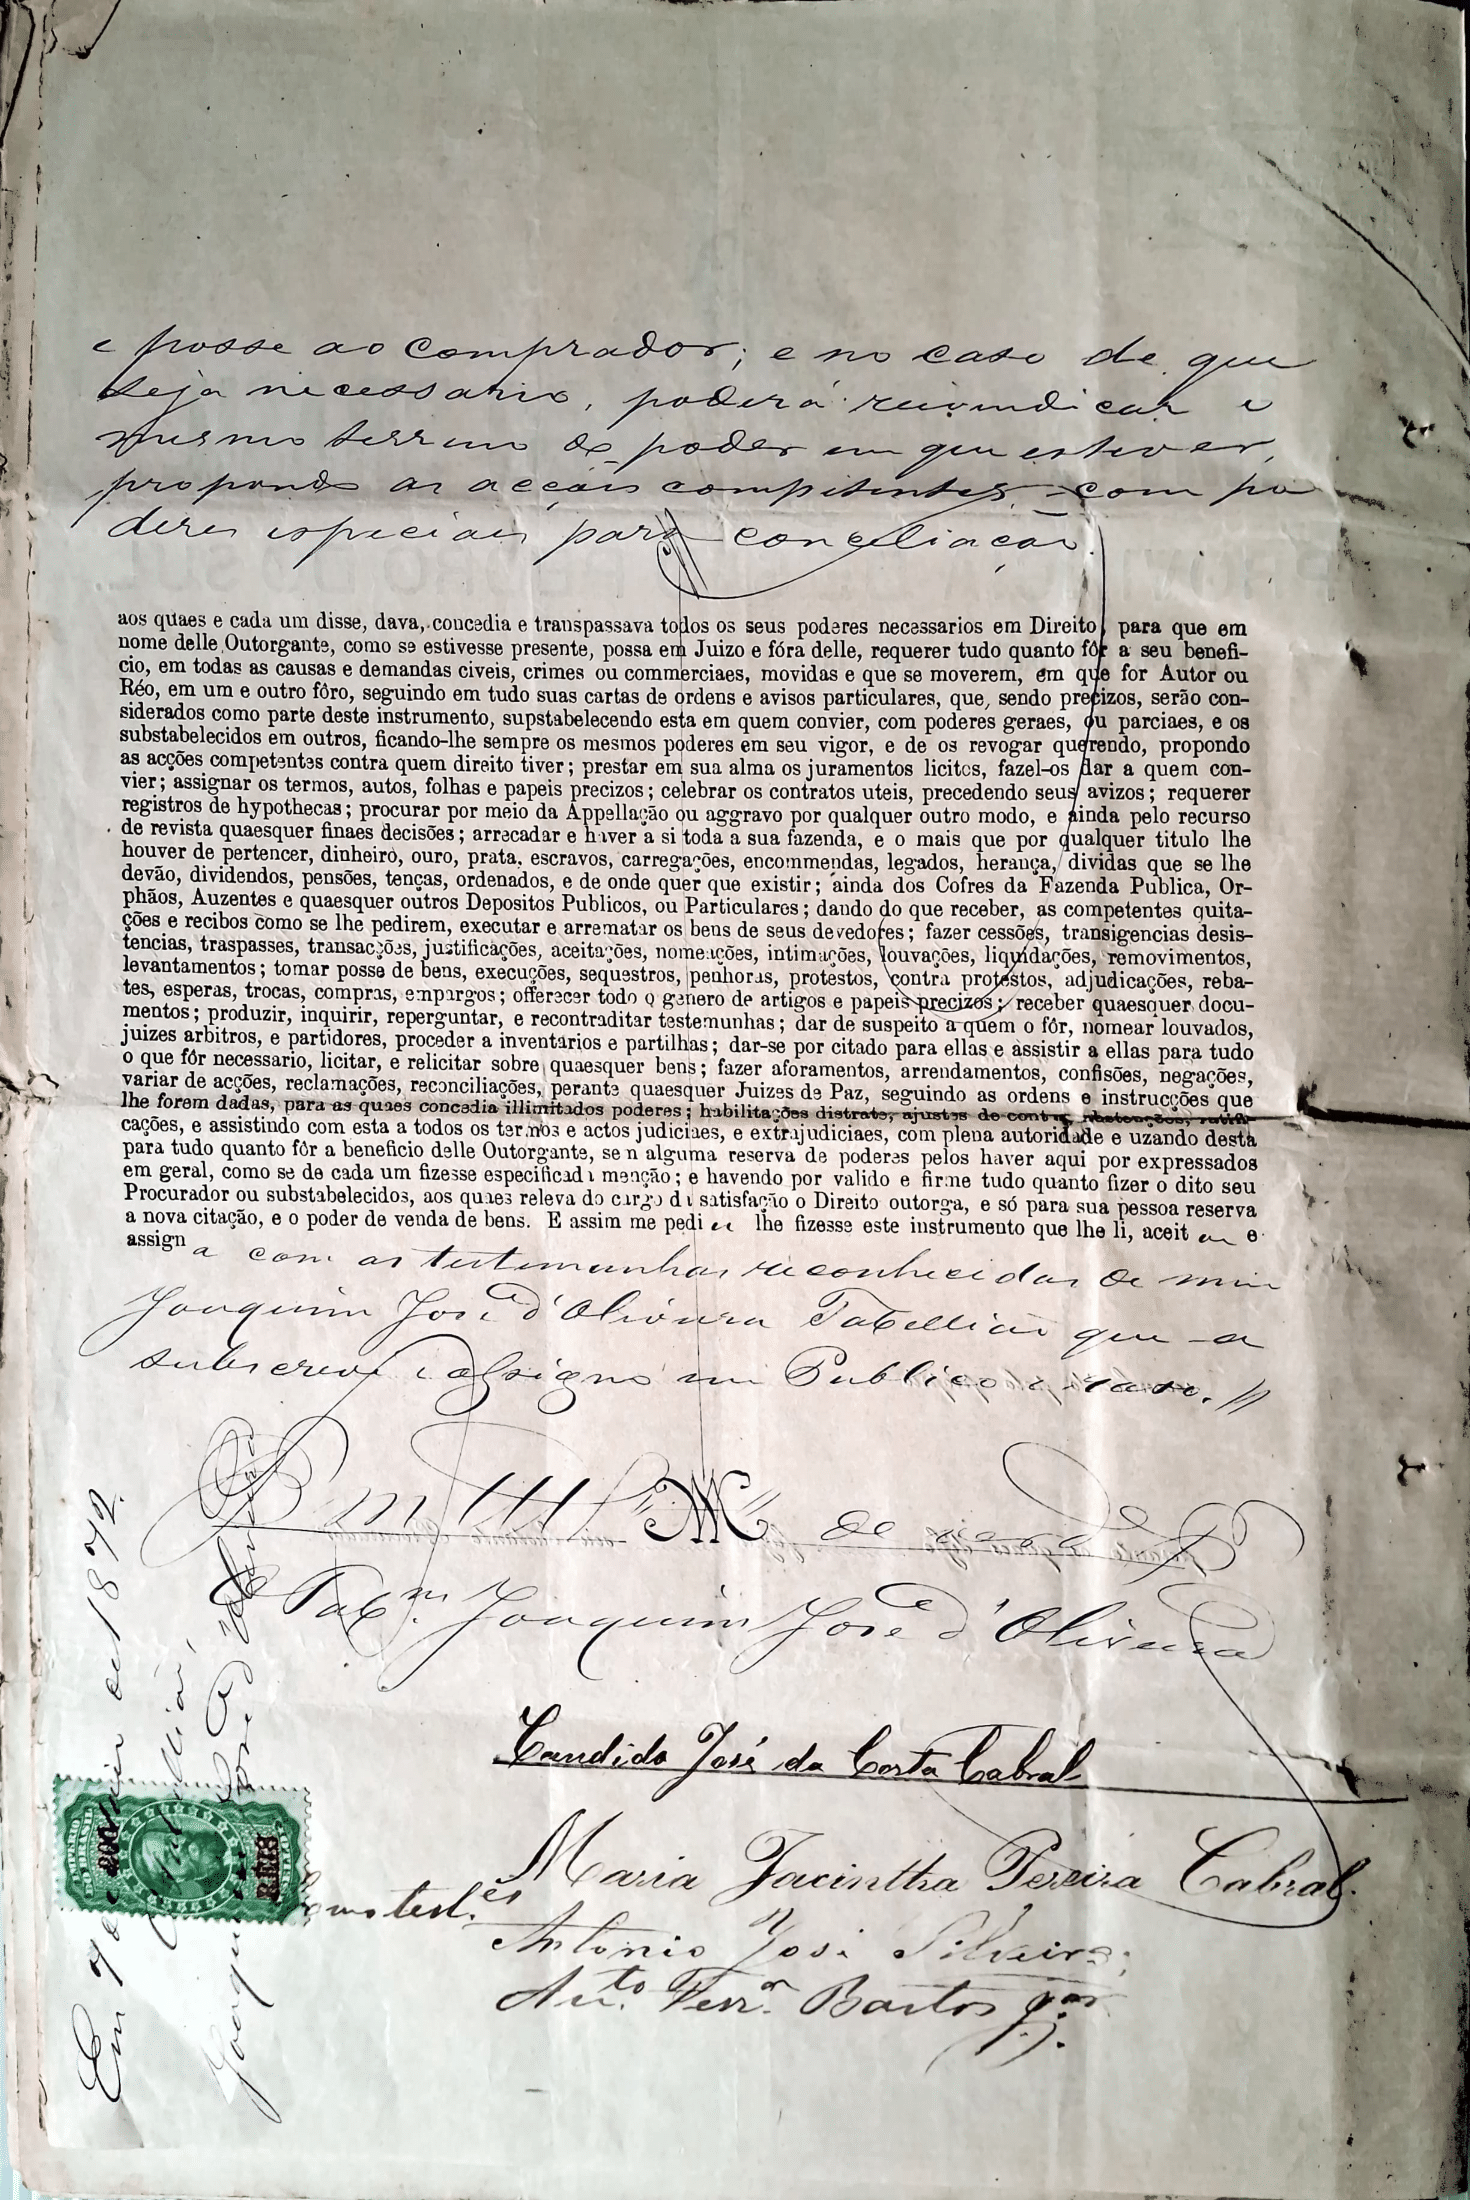 e posse ao comprador; e no caso de que
seja necessario, poderá reivindicar o
mesmo terreno do poder em que estiver,
propondo as acções competentes com po
deres especiaes para conciliação.
aos quaes e cada um disse, dava, concedia e transpassava todos os seus poderes necessarios em Direito, para que em
nome delle Outorgante, como se estivesse presente, possa em Juizo e fóra delle, requerer tudo quanto fôr a seu benefi-
cio, em todas as causas e demandas civeis, crimes ou commerciaes, movidas e que se moverem, em que for Autor ou
Réo, em um e outro fôro, seguindo em tudo suas cartas de ordens e avisos particulares, que, sendo precizos, serão con-
siderados como parte deste instrumento, supstabelecendo esta em quem convier, com poderes geraes, ou parciaes, e os
substabelecidos em outros, ficando-lhe sempre os mesmos poderes em seu vigor, e de os revogar querendo, propondo
as acções competentes contra quem direito tiver; prestar em sua alma os juramentos licitos, fazel-os dar a quem con-
vier; assignar os termos, autos, folhas e papeis precizos; celebrar os contratos uteis, precedendo seus avizos; requerer
registros de hypothecas; procurar por meio da Appellação ou aggravo por qualquer outro modo, e ainda pelo recurso
de revista quaesquer finaes decisões; arrecadar e haver a si toda a sua fazenda, e o mais que por qualquer titulo lhe
houver de pertencer, dinheiro, ouro, prata, escravos, carregações, encommendas, legados, herança, dividas que se lhe
devão, dividendos, pensões, tenças, ordenados, e de onde quer que existir; ainda dos Cofres da Fazenda Publica, Or-
phãos, Auzentes e quaesquer outros Depositos Publicos, ou Particulares; dando do que receber, as competentes quita-
ções e recibos como se lhe pedirem, executar e arrematar os bens de seus devedores; fazer cessões, transigencias desis-
tencias, traspasses, transacções, justificações, aceitações, nomeações, intimações, louvações, liquidações, removimentos,
levantamentos; tomar posse de bens, execuções, sequestros, penhoras, protestos, contra protestos, adjudicações, reba-
tes, esperas, trocas, compras, empargos; offerecer todo o genero de artigos e papeis precizos; receber quaesquer docu-
mentos; produzir, inquirir, reperguntar, e recontraditar testemunhas; dar de suspeito a quem o fôr, nomear louvados,
juizes arbitros, e partidores, proceder a inventarios e partilhas; dar-se por citado para ellas e assistir a ellas para tudo
o que fôr necessario, licitar, e relicitar sobre quaesquer bens; fazer aforamentos, arrendamentos, confisões, negações,
variar de acções, reclamações, reconciliações, perante quaesquer Juizes de Paz, seguindo as ordens e instrucções que
lhe forem dadas, para as quaes concedia illimitados poderes; habilitações distrate, ajustes de contas, abstenções, ratifi
cações, e assistindo com esta a todos os termos e actos judiciaes, e extrajudiciaes, com plena autoridade e uzando desta
para tudo quanto fôr a beneficio delle Outorgante, sem alguma reserva de poderes pelos haver aqui por expressados
em geral, como se de cada um fizesse especificada menção; e havendo por valido e firme tudo quanto fizer o dito seu
Procurador ou substabelecidos, aos quaes releva do cargo da satisfação o Direito outorga, e só para sua pessoa reserva
a nova citação, e o poder de venda de bens. E assim me pedi u lhe fizesse este instrumento que lhe li, aceit ou e
assign a com as testemunhas reconhecidas de mim
Joaquim José d'Oliveira Tabellião que a
subscrevi e assigno em Publico e raso.
Em de verd.e
O Tab.m Joaquim José d'Oliveira
Candido José da Costa Cabral
Maria Jacintha Pereira Cabral.
Como test.es
Antonio José Silveira
An.to Ferr.a Bastos
Em 7 de de 1872.
Tabellião
Joaquim José d'Oliveira
IMPERIO DO BRASIL
200
REIS